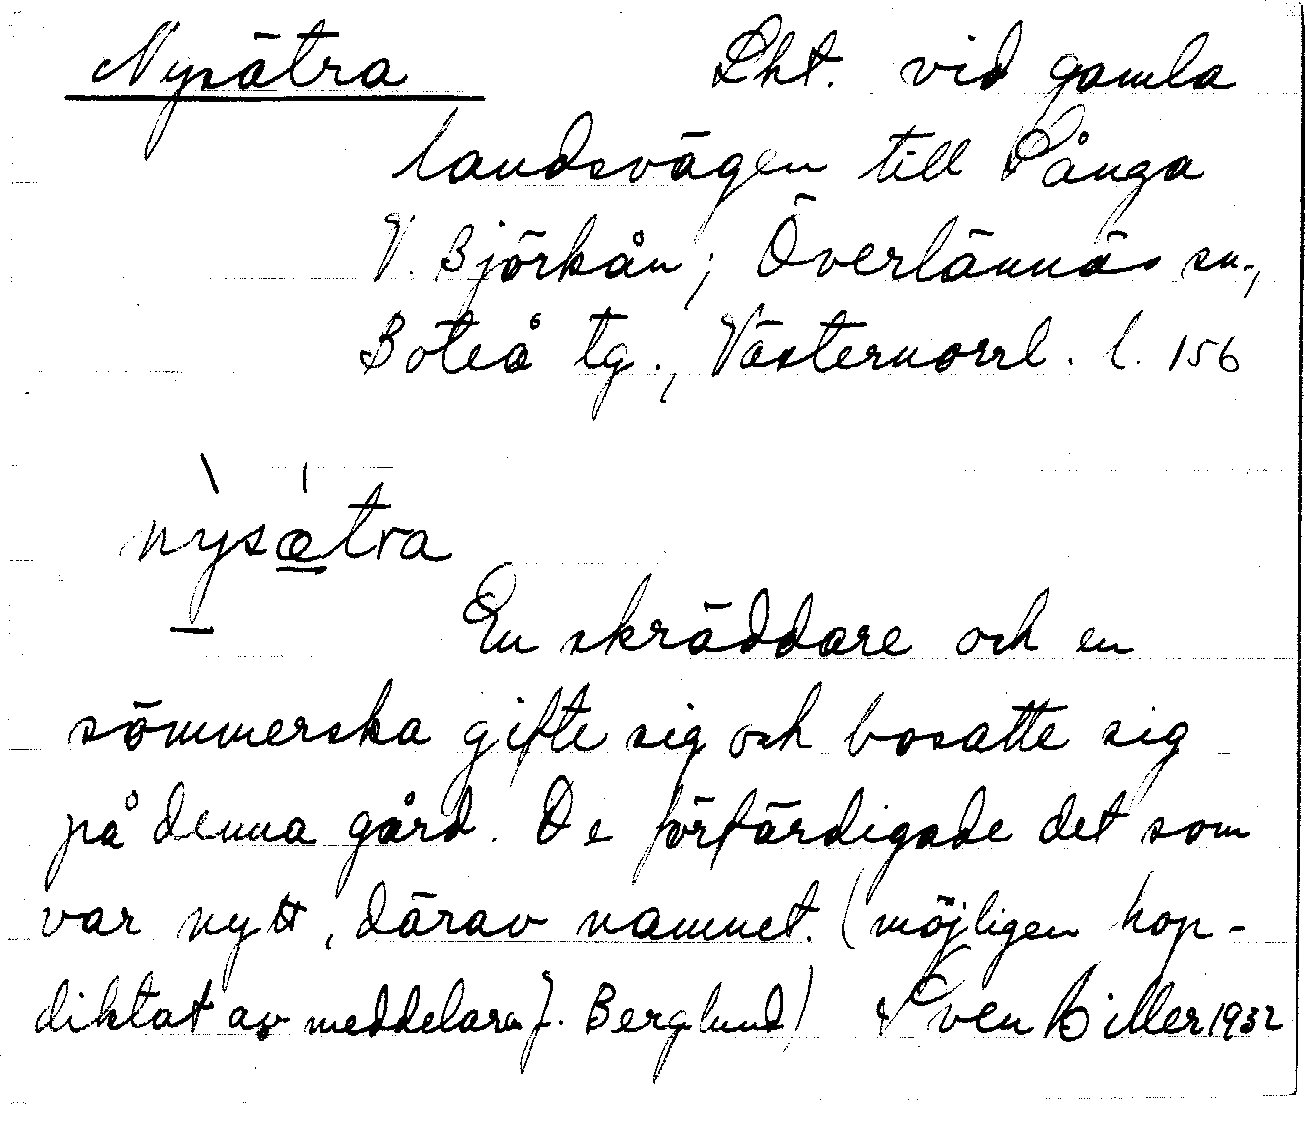 Nysätra Lht. vid gamla
landsvägen till Långa
V. Björkån; Överlännäs sn.,
Boteå tg., Västernorrl. l. 156
nysætra
En skräddare och en
sömmerska gifte sig och bosatte sig
på denna gård. De förfärdigade det som
var nytt, därav namnet. (möjligen hop-
diktat av meddelaren J. Berglund) Sven Hiller 1932